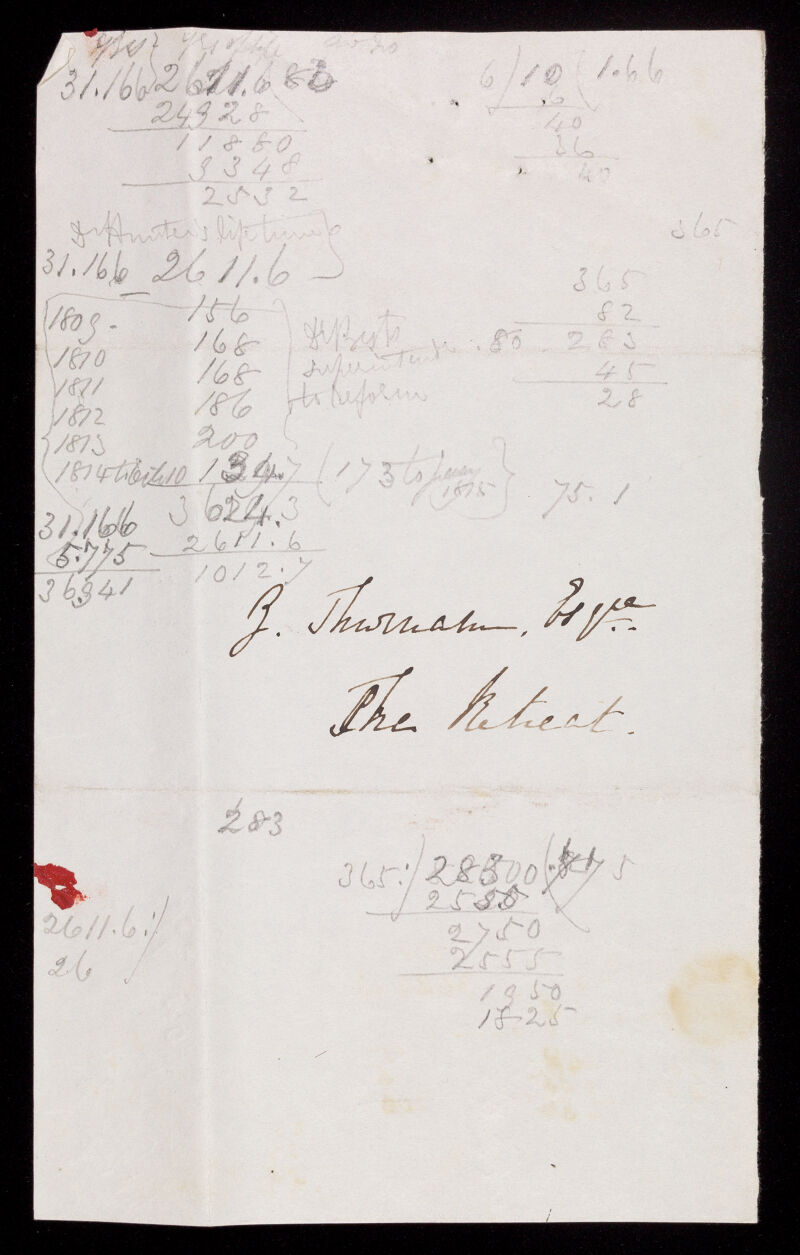 31.166 2611.6 83
24928
11880
9348
2532
6/10(1.66
6
40
36
40
365
Dr Hunter's life time
31.166 2611.6
1809 - 156
1810 168
1811 168
1812 186
1813 200
1814 to 10 134.7 (173 to 1815)
Dr Best's
superintende
to reform
365
82
.80 283
45
28
75.1
31.166 3624.3
5.775 2611.6
36941 1012.7
Z. Thurnam, Esqre
The Retreat.
283
365:/28300(.775
2555
2750
2555
1950
1825
2611.6:/
26